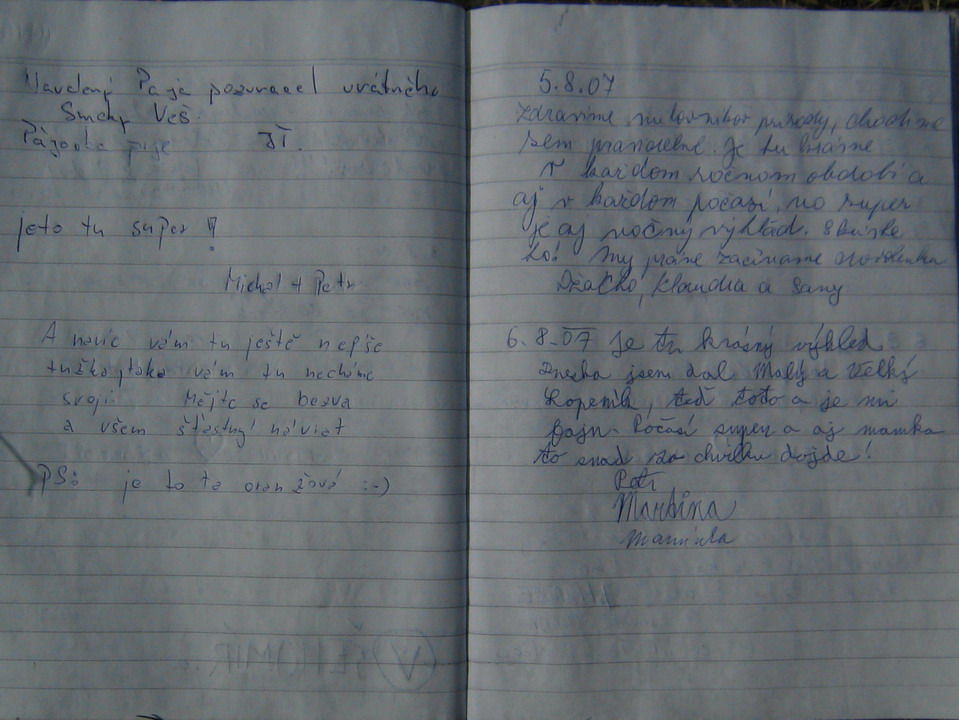 Pája pozvracel vrátného
Smích Veš
píše JŤ.
jeto tu super !
Michal + Petr
A navíc vám tu ještě nepíše
tužka, tako vám tu necháme
svoji. Mějte se bezva
a všem šťastný návrat
PS: je to ta oranžová :-)
5.8.07
zdravíme milovníkov prírody, chodíme
sem pravidelne. Je tu krásne
v každom ročnom období a
aj v každom počasí, no super
je aj nočný výhľad. Skúste
to! My práve začíname
Klaudia a Sany
6.8.07 Je tu krásný výhled
Dneska jsem dal Malý a Velký
Lopeník, teď toto a je mi
fajn. Počasí super a aj mamka
to snad za chvilku dojde!
Petr
Martina